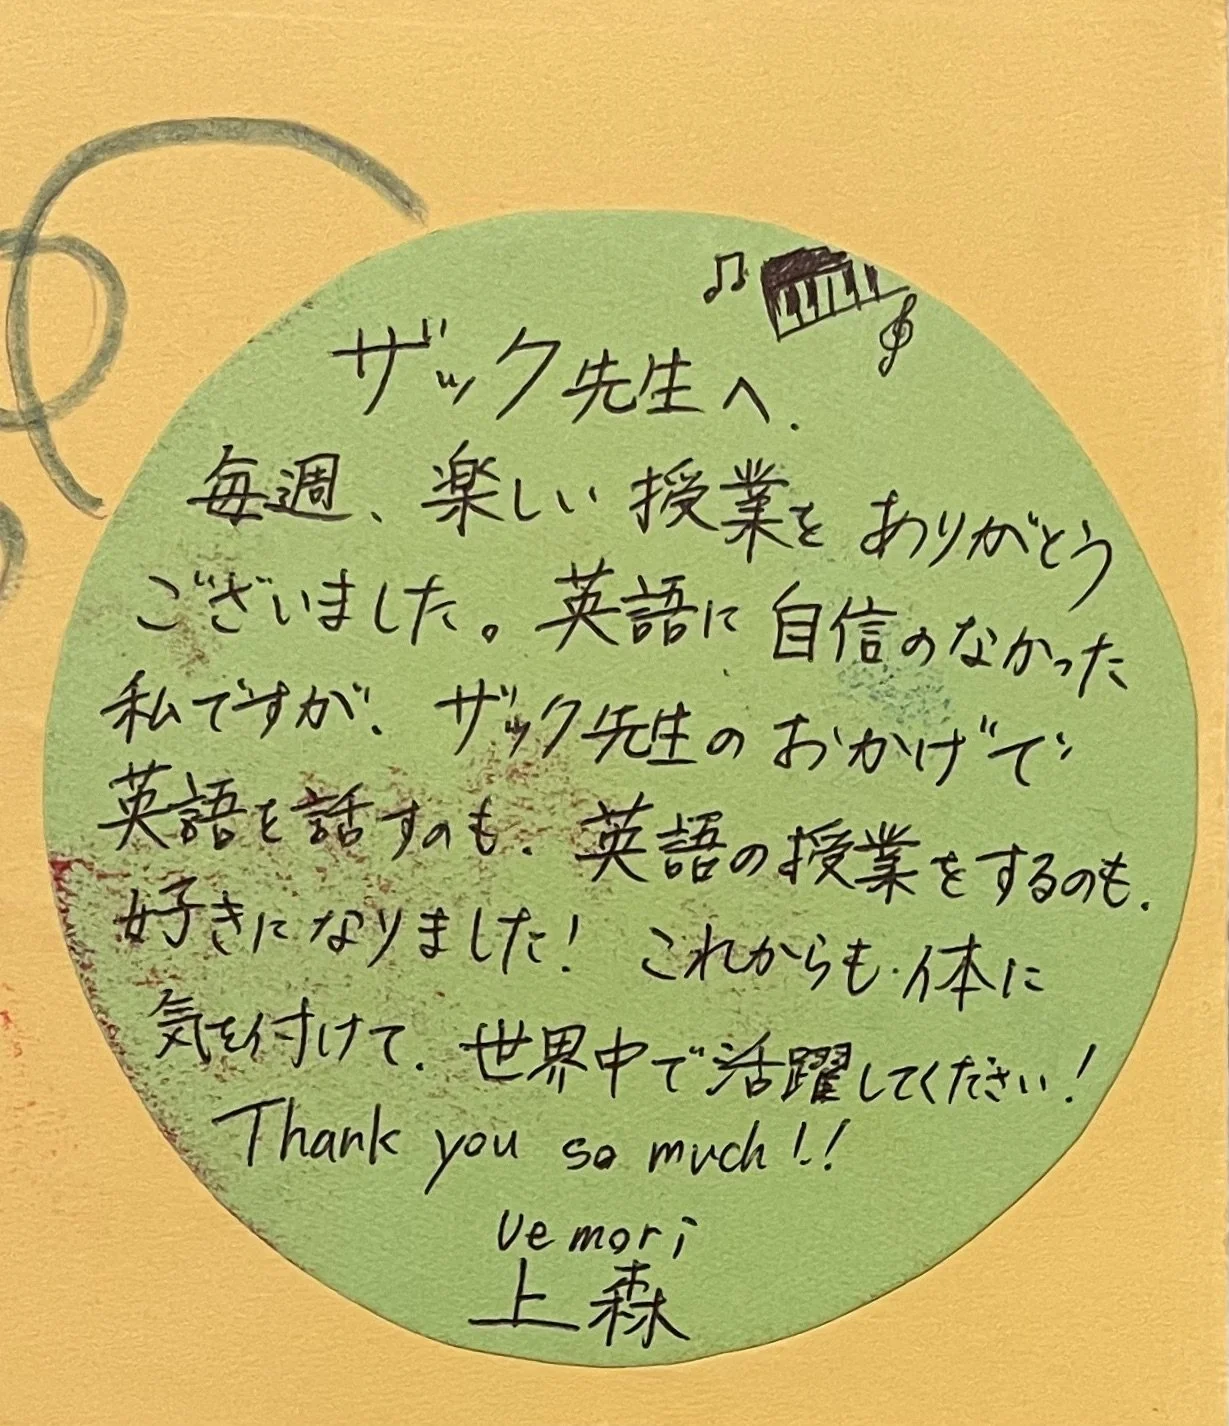 ザック先生へ.
毎週、楽しい授業をありがとう
ございました。英語に自信のなかった
私ですが、ザック先生のおかげで
英語を話すのも、英語の授業をするのも、
好きになりました！これからも、体に
気を付けて、世界中で活躍してください！
Thank you so much!!
Uemori
上森